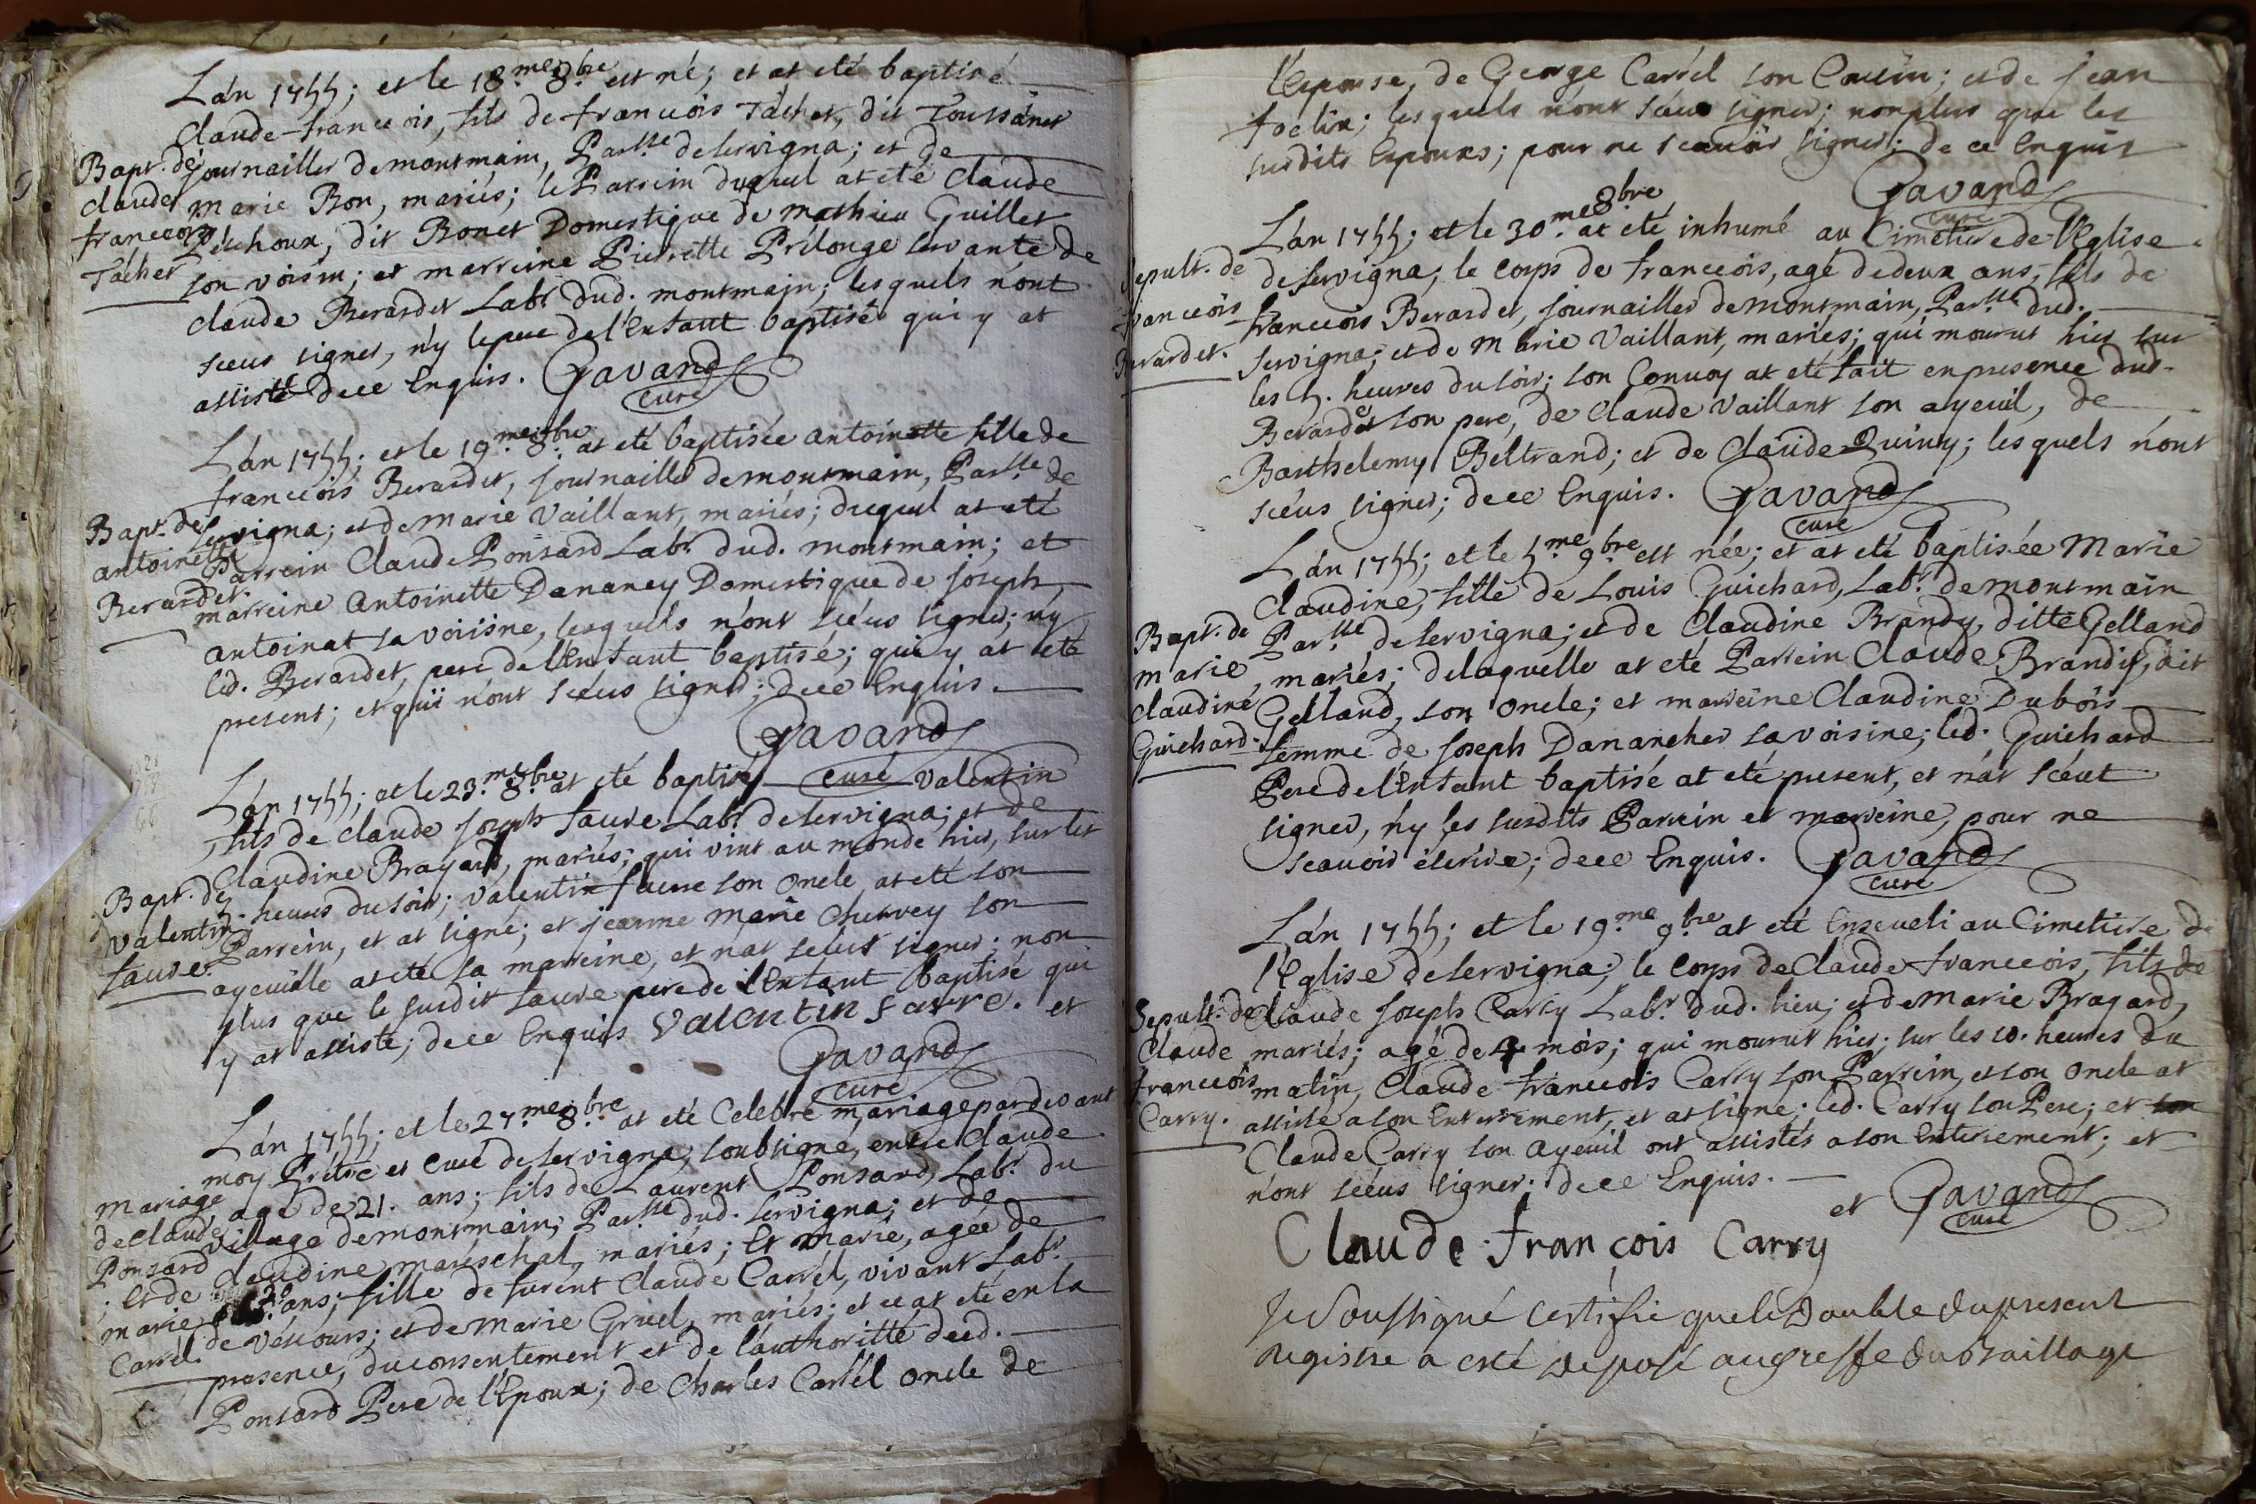 L'an 1755; et le 18.me 8.bre est né; et at eté baptisé
Claude-francois, fils de francois Tachet, dit Toussanet
Bapt. de
Claude
francois
Tachet
journaillier de montmain, Parsse de servigna; et de
marie Bon, mariés; le Parrein duquel at eté Claude
Pechoux, dit Bonet Domestique de mathieu Guillet
son voisin; et marreine Pierrette Prélonge servante de
claude Berardet Labr. dud. montmain; lesquels n'ont
sceus signer, n'y le pere de l'Enfant baptisé qui y at
assisté de ce Enquis. Gavand
curé
L'an 1755; et le 19.me 8.bre at eté baptisée antoinette fille de
francois Berardet, journaillier de montmain, Parsse de
Bapt. de
antoinette
Berardet.
servigna; et de marie Vaillant, mariés; duquel at eté
Parrein Claude Ponsard Labr. dud. montmain; et
marreine Antoinette Dananey Domestique de Joseph
antoinat sa voisine, lesquels n'ont scéus signer; n'y
led. Berardet, pere de l'Enfant baptisé; qui y at eté
present; et qui n'ont scéus signer; de ce Enquis.
Gavand
curé
L'an 1755; et le 23.me 8.bre at eté baptisé valentin
fils de claude Joseph faure Labr. de servigna; et de
Claudine Bragard, mariés; qui vint au monde hier, sur les
Bapt. de
valentin
faure.
heures du soir; valentin faure son oncle at eté son
Parrein, et at signé; et jeanne marie Chervey son
ayeuille at eté sa marreine, et n'at sceüs signer; non
plus que le susdit faure pere de l'Enfant baptisé qui
y at assisté; de ce Enquis valentin favre. et
Gavand
curé
L'an 1755; et le 27.me 8.bre at eté Celebré mariage pardevant
moy Prêtre et curé de servigna, soubsigné, entre Claude
mariage
de claude
Ponsard
et de
marie
Carrel.
agé de 21. ans; fils de Laurent Ponsard, Labr. du
village de montmain, Parsse dud. servigna; et de
Claudine maréschal, mariés; Et marie, agée de
20. ans; fille de furent Claude Carrél, vivant Labr.
de Vescours; et de marie Gruel, mariés; et ce at eté en la
presence, du consentement et de l'authoritté dud.
Ponsard Pere de l'Epoux; de Charles Carrél oncle de
l'Epouse, de George Carrél son Cousin; et de jean
foclin; lesquels n'ont sceus signer; non plus que les
susdits Epoux; pour ne scauoir signer: de ce Enquis
Gavand
curé
L'an 1755; et le 30.me 8.bre at eté inhumé au Cimetiere de l'Eglise
Sepult. de
francois
Berardet.
de servigna; le corps de francois, agé de deux ans, fils de
francois Berardet, journaillier de montmain, Parsse dud.
servigna; et de marie Vaillant, mariés; qui mourut hier sur
les 5. heures du soir; son Convoy at eté fait en presence dud.
Berardet son pere, de Claude Vaillant son ayeuil, de
Barthelemy Beltrand; et de Claude Quiny; lesquels n'ont
scéus signer; de ce Enquis. Gavand
curé
L'an 1755; et le 5.me 9.bre est née; et at eté baptisée Marie
Claudine, fille de Louis Guichard, Labr. de montmain
Bapt. de
marie
claudine
Guichard.
Parsse de servigna; et de Claudine Brandy, ditte Gelland
mariés; de laquelle at eté Parrein Claude Brandy, dit
Gelland, son oncle; et marreine Claudine Dubois
femme de Joseph Danancher sa voisine; led. Guichard
Pere de l'Enfant baptisé at eté present, et n'at scéut
signer, n'y les susdits Parrein et marreine, pour ne
scauoir écrire; de ce Enquis. Gavand
curé
L'an 1755; et le 19.me 9.bre at eté Enseveli au Cimetiere de
l'Eglise de servigna; le corps de Claude francois, fils de
Sepult. de
Claude
francois
Carry.
Claude Joseph Carry Labr. dud. lieu; et de marie Bragard,
mariés; agé de 4 mois; qui mourut hier; sur les 10. heures du
matin, Claude francois Carry son Parrein, et son oncle at
assisté a son Enterrement, et at signé; led. Carry son Pere; et
Claude Carry son ayeuil ont assistés a son Enterrement; et
n'ont scéus signer: de ce Enquis.
et Gavand
curé
Claude francois Carry
Je Soussigné certifie que le Double du present
Registre a esté deposé au greffe du Bailliage